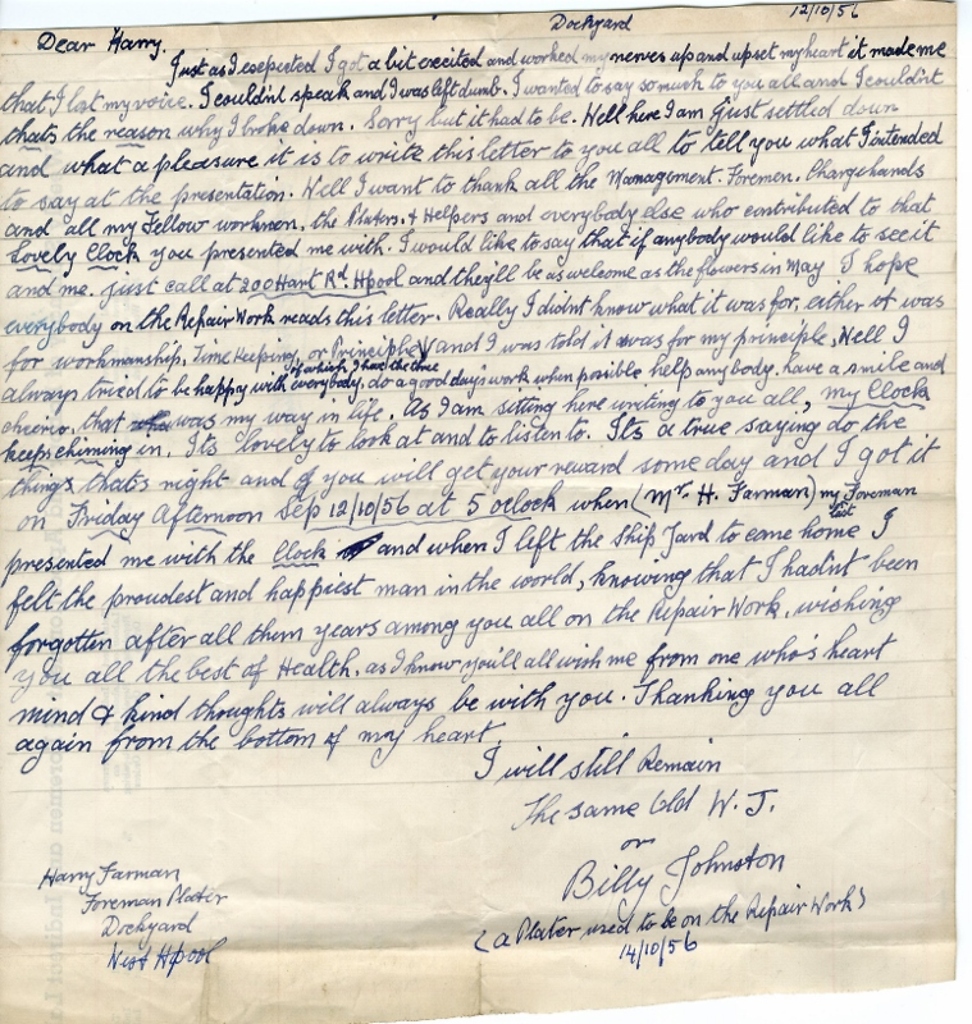 Dockyard 12/10/56
Dear Harry.
Just as I expected I got a bit excited and worked my nerves up and upset my heart it made me
that I lost my voice. I couldn't speak and I was left dumb. I wanted to say so much to you all and I couldn't
thats the reason why I broke down. Sorry but it had to be. Well here I am just settled down
and what a pleasure it is to write this letter to you all to tell you what I intended
to say at the presentation. Well I want to thank all the Management. Foremen. Chargehands
and all my Fellow workmen, the Platers. & Helpers and everybody else who contributed to that
Lovely Clock you presented me with. I would like to say that if anybody would like to see it
and me. just call at 200 Hart Rd. Hpool and they'll be as welcome as the flowers in May I hope
everybody on the Repair Work reads this letter. Really I didnt know what it was for, either it was
for workmanship, Time Keeping, or Principle, and I was told it was for my principle, Well I
of which I had the three
always tried to be happy with everybody, do a good day's work when possible help anybody. have a smile and
cheerio. that was my way in life. As I am sitting here writing to you all, my Clock
keeps chiming in, Its lovely to look at and to listen to. Its a true saying do the
things thats right and of you will get your reward some day and I got it
on Friday Afternoon Sep 12/10/56 at 5 oclock when (Mr. H. Farman) my Foreman
last
presented me with the Clock and when I left the Ship Yard to come home I
felt the proudest and happiest man in the world, knowing that I hadn't been
forgotten after all them years among you all on the Repair Work, wishing
you all the best of Health, as I know you'll all wish me from one who's heart
mind & kind thoughts will always be with you. Thanking you all
again from the bottom of my heart.
I will still Remain
The same Old W. J.
or
Billy Johnston
(a Plater used to be on the Repair Work)
14/10/56
Harry Farman
Foreman Plater
Dockyard
West Hpool